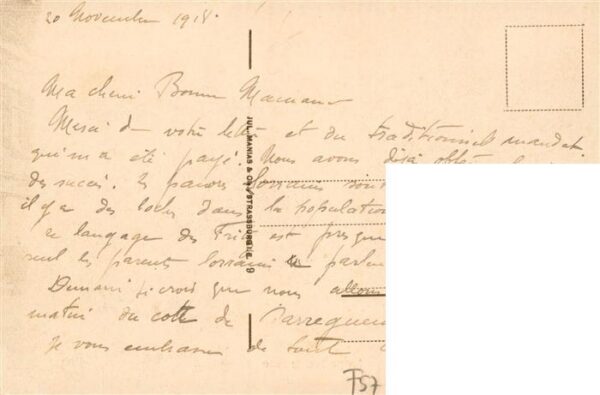 20 Novembre 1918.
Ma cheri Bonne Maman
Merci de votre lettre et du traditionnel mandat
qui m'a été payé. Nous avons déjà
des succès. Les pauvres lorrains sont
il y a des boches dans la population
Le langage des Fritz est presque
seul les parents lorrains parlent
Demain je crois que nous allons
matin du coté de Sarreguem
Je vous embrasse de tout
JUL. MANIAS & CIE, STRASSBURG I. E.
F57